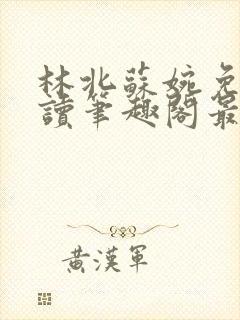 林北蘇婉免
讀筆趣閣最
黃漢軍